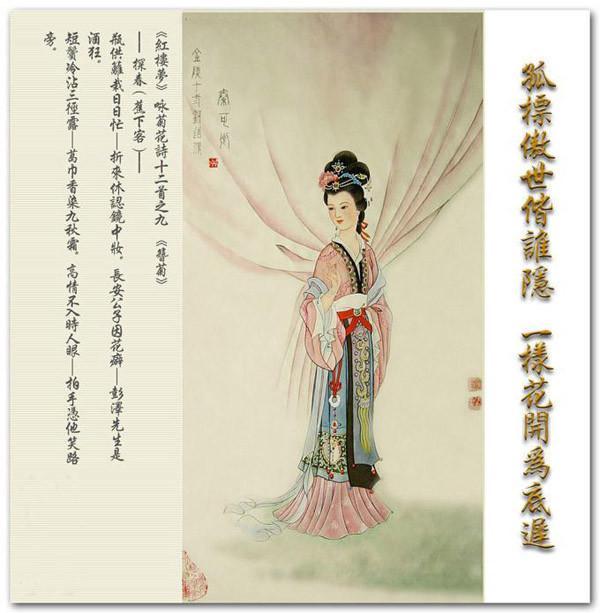 孤標傲世偕誰隱 一樣花開為底遲
秦可卿
金陵十二釵
《紅樓夢》 咏菊花詩十二首之九 《簪菊》
——探春(蕉下客)——
瓶供籬栽日日忙——折來休認鏡中妝。 長安公子因花癖——彭澤先生是
酒狂。
短鬢冷沾三徑露——葛巾香染九秋霜。高情不入時人眼——拍手憑他笑路
旁。